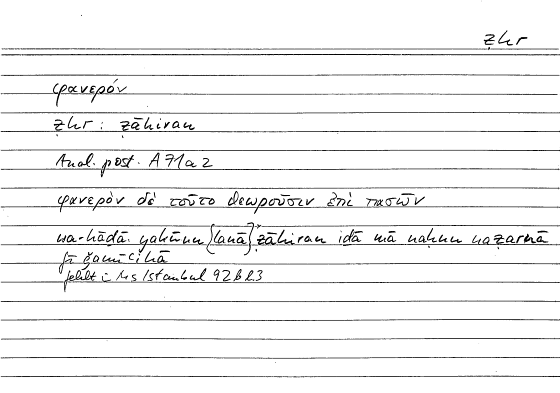 ẓhr
φανερόν
ẓhr : ẓāhiran
Anal. post. A 71a2
φανερὸν δὲ τοῦτο θεωροῦσιν ἐπὶ πασῶν
wa-hāḏā yakūnu {lanā} ẓāhiran iḏā mā naḥnu naẓarnā
fī ǧamīʿihā
fehlt in Ms Istanbul 92b23